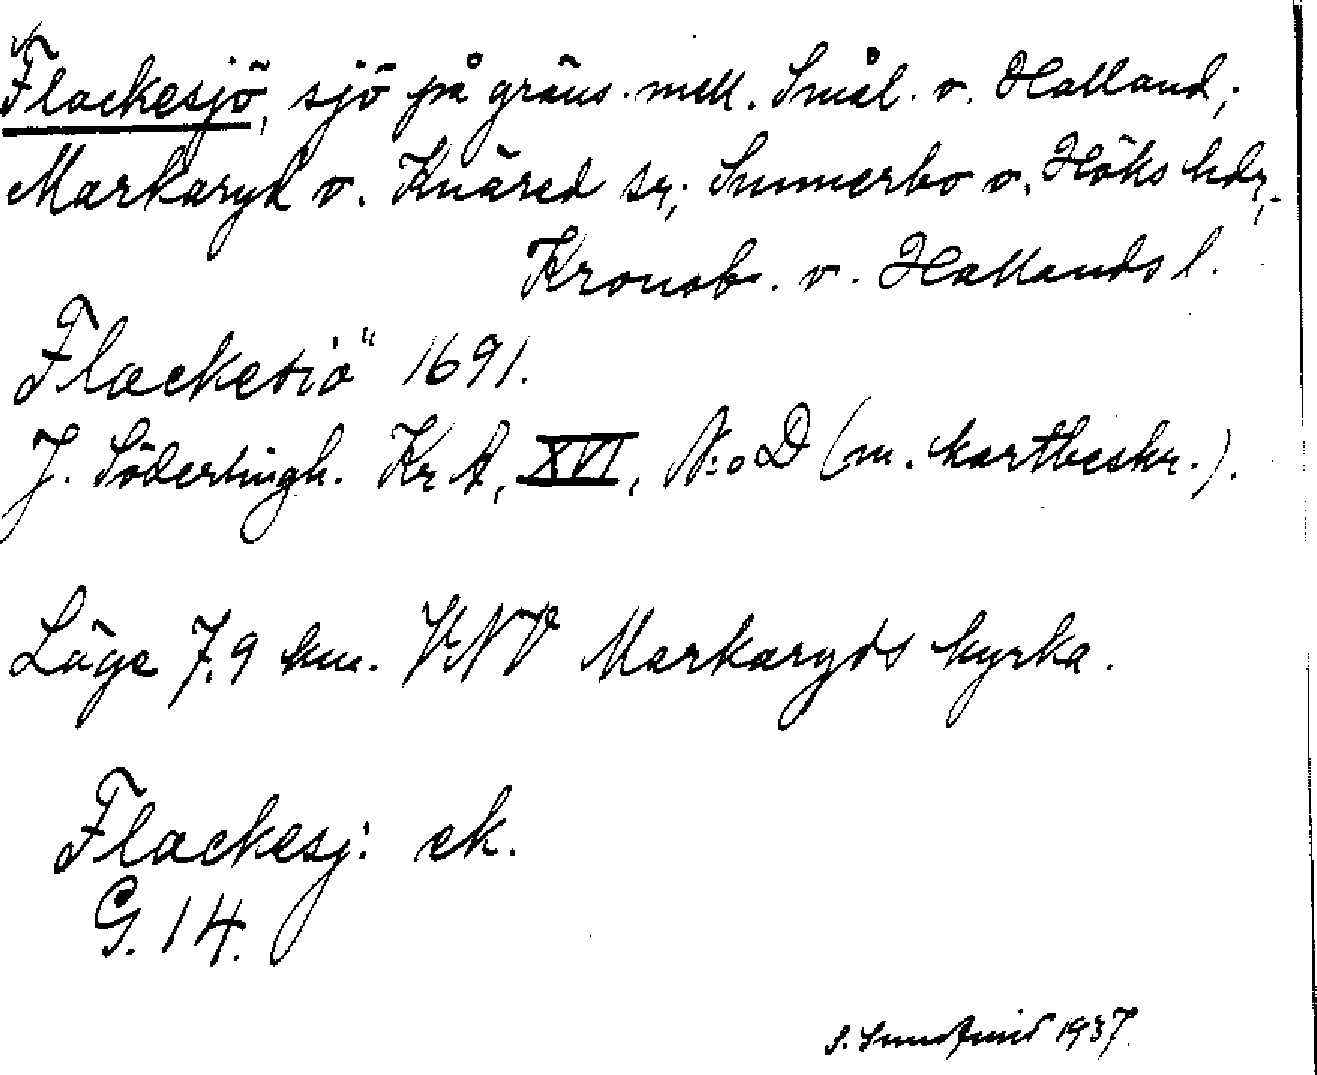 Flackesjö, sjö på gräns. mell. Smål. o. Halland;
Markaryd o. Knäred sr; Sunnerbo o. Höks hdr,
Kronob. o. Hallands l.
Flackesiö" 1691.
J. Söderlingh. Kr A, XVI, N:o D (m. kartbeskr.).
Läge 7.9 km. VNV Markaryds kyrka.
Flackesj: ek.
G. 14.
S. 1937